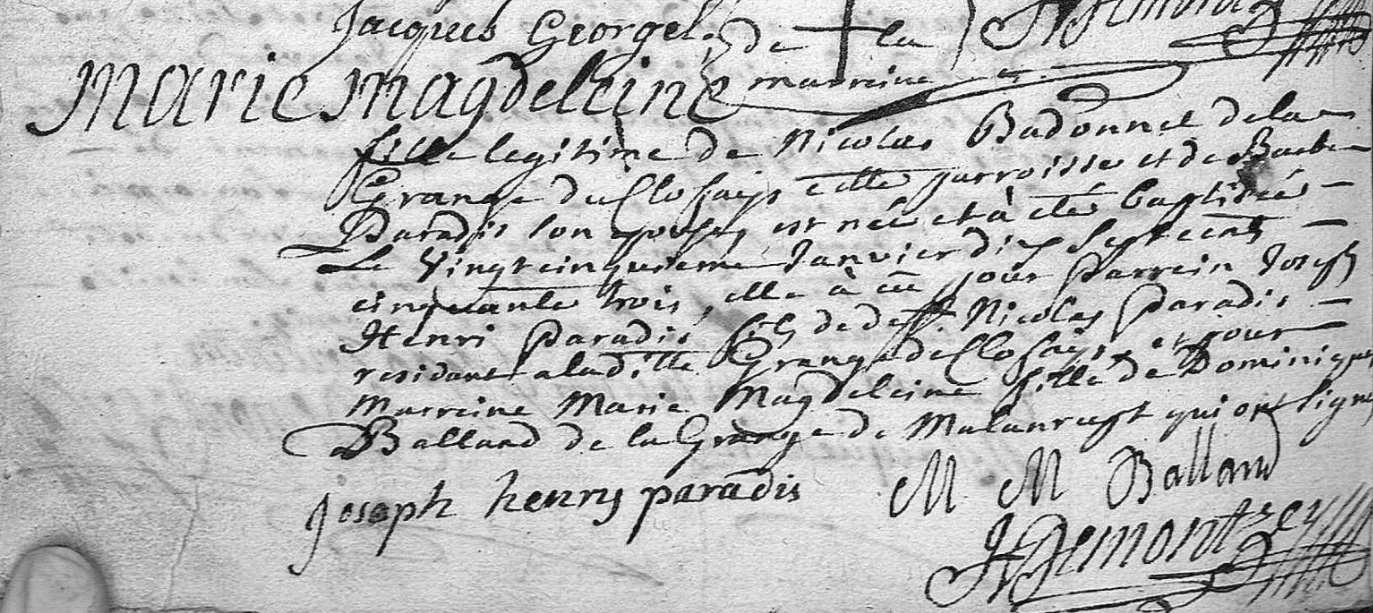 Jacques Georgel de la
marreine
Marie Magdeleine
fille legitime de Nicolas Badonnel dela
Grange du Clo faijs cette parroisse et de Barbe
Paradis son epouse, est née et à etée baptisée
Le Vingtcinquieme Janvier dix Septcent
cinquante trois, elle à eu pour Parrein Joseph
Henri Paradis fils de deff. Nicolas Paradis
residant aladitte Grange de Clo faijs, et pour
Marreine Marie Magdeleine fille de Dominique
Balland de la Grange de qui ont signé
Joseph henry paradis M M Balland